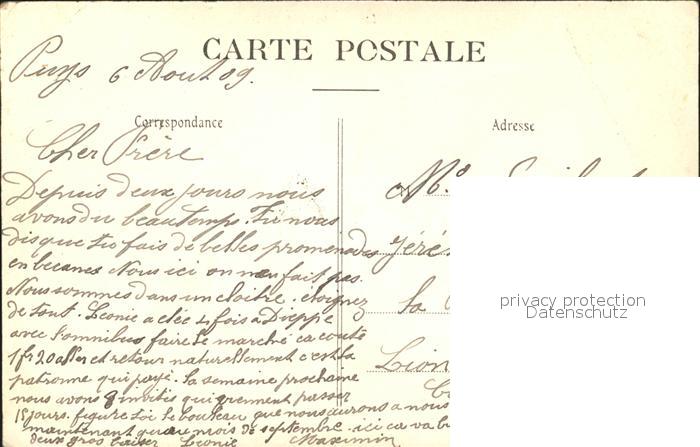 CARTE POSTALE
Puys 6 Aout 09.
Correspondance
Adresse
Cher Frère
Depuis deux jours nous
avons du beau temps. Tu nous
dis que tu fais de belles promenades
en becane. Nous ici on n'en fait pas.
Nous sommes dans un cloitre. éloignez
de tout. Léonie a étée 4 fois a Dieppe
avec l'omnibus faire le marché ca coute
1 fr 20 aller et retour naturellement c'est la
patronne qui paye. la semaine prochaine
nous avons 8 invités qui viennent passer
15 jours. figure toi le bouleau que nous aurons a nous
maintenant qu'au mois de septembre. ici ca va b
deux gros baiser Léonie Maximin
Mr
Jéré
la
Lion
privacy protection
Datenschutz